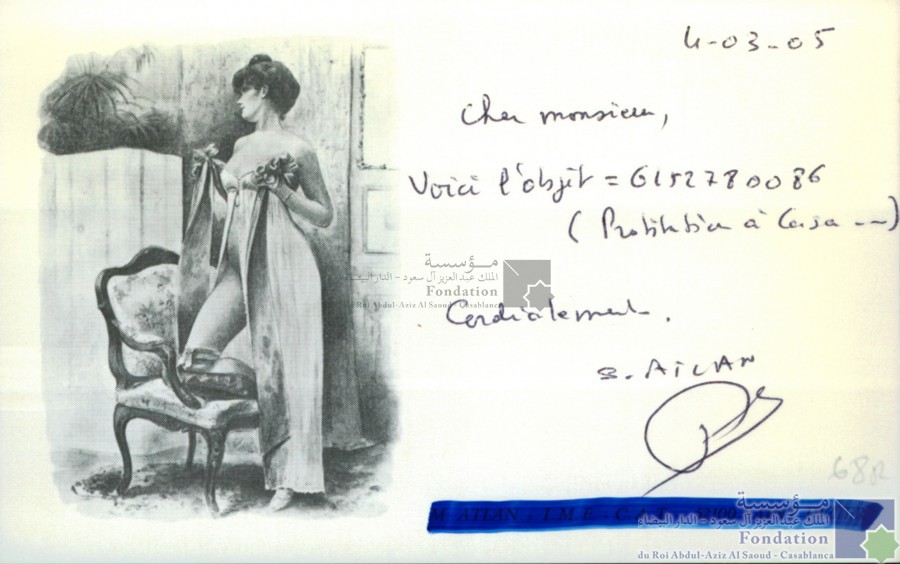 4-03-05
Cher monsieur,
Voici l'objet = 6152780086
(Prostitution à Casa ---)
Cordialement.
S. ATLAN
68R
M ATLAN - I.M.E - C.A.T
مؤسسة
الملك عبدالعزيز آل سعود - الدار البيضاء
Fondation
du Roi Abdul-Aziz Al Saoud - Casablanca
مؤسسة
الملك عبدالعزيز آل سعود - الدار البيضاء
Fondation
du Roi Abdul-Aziz Al Saoud - Casablanca